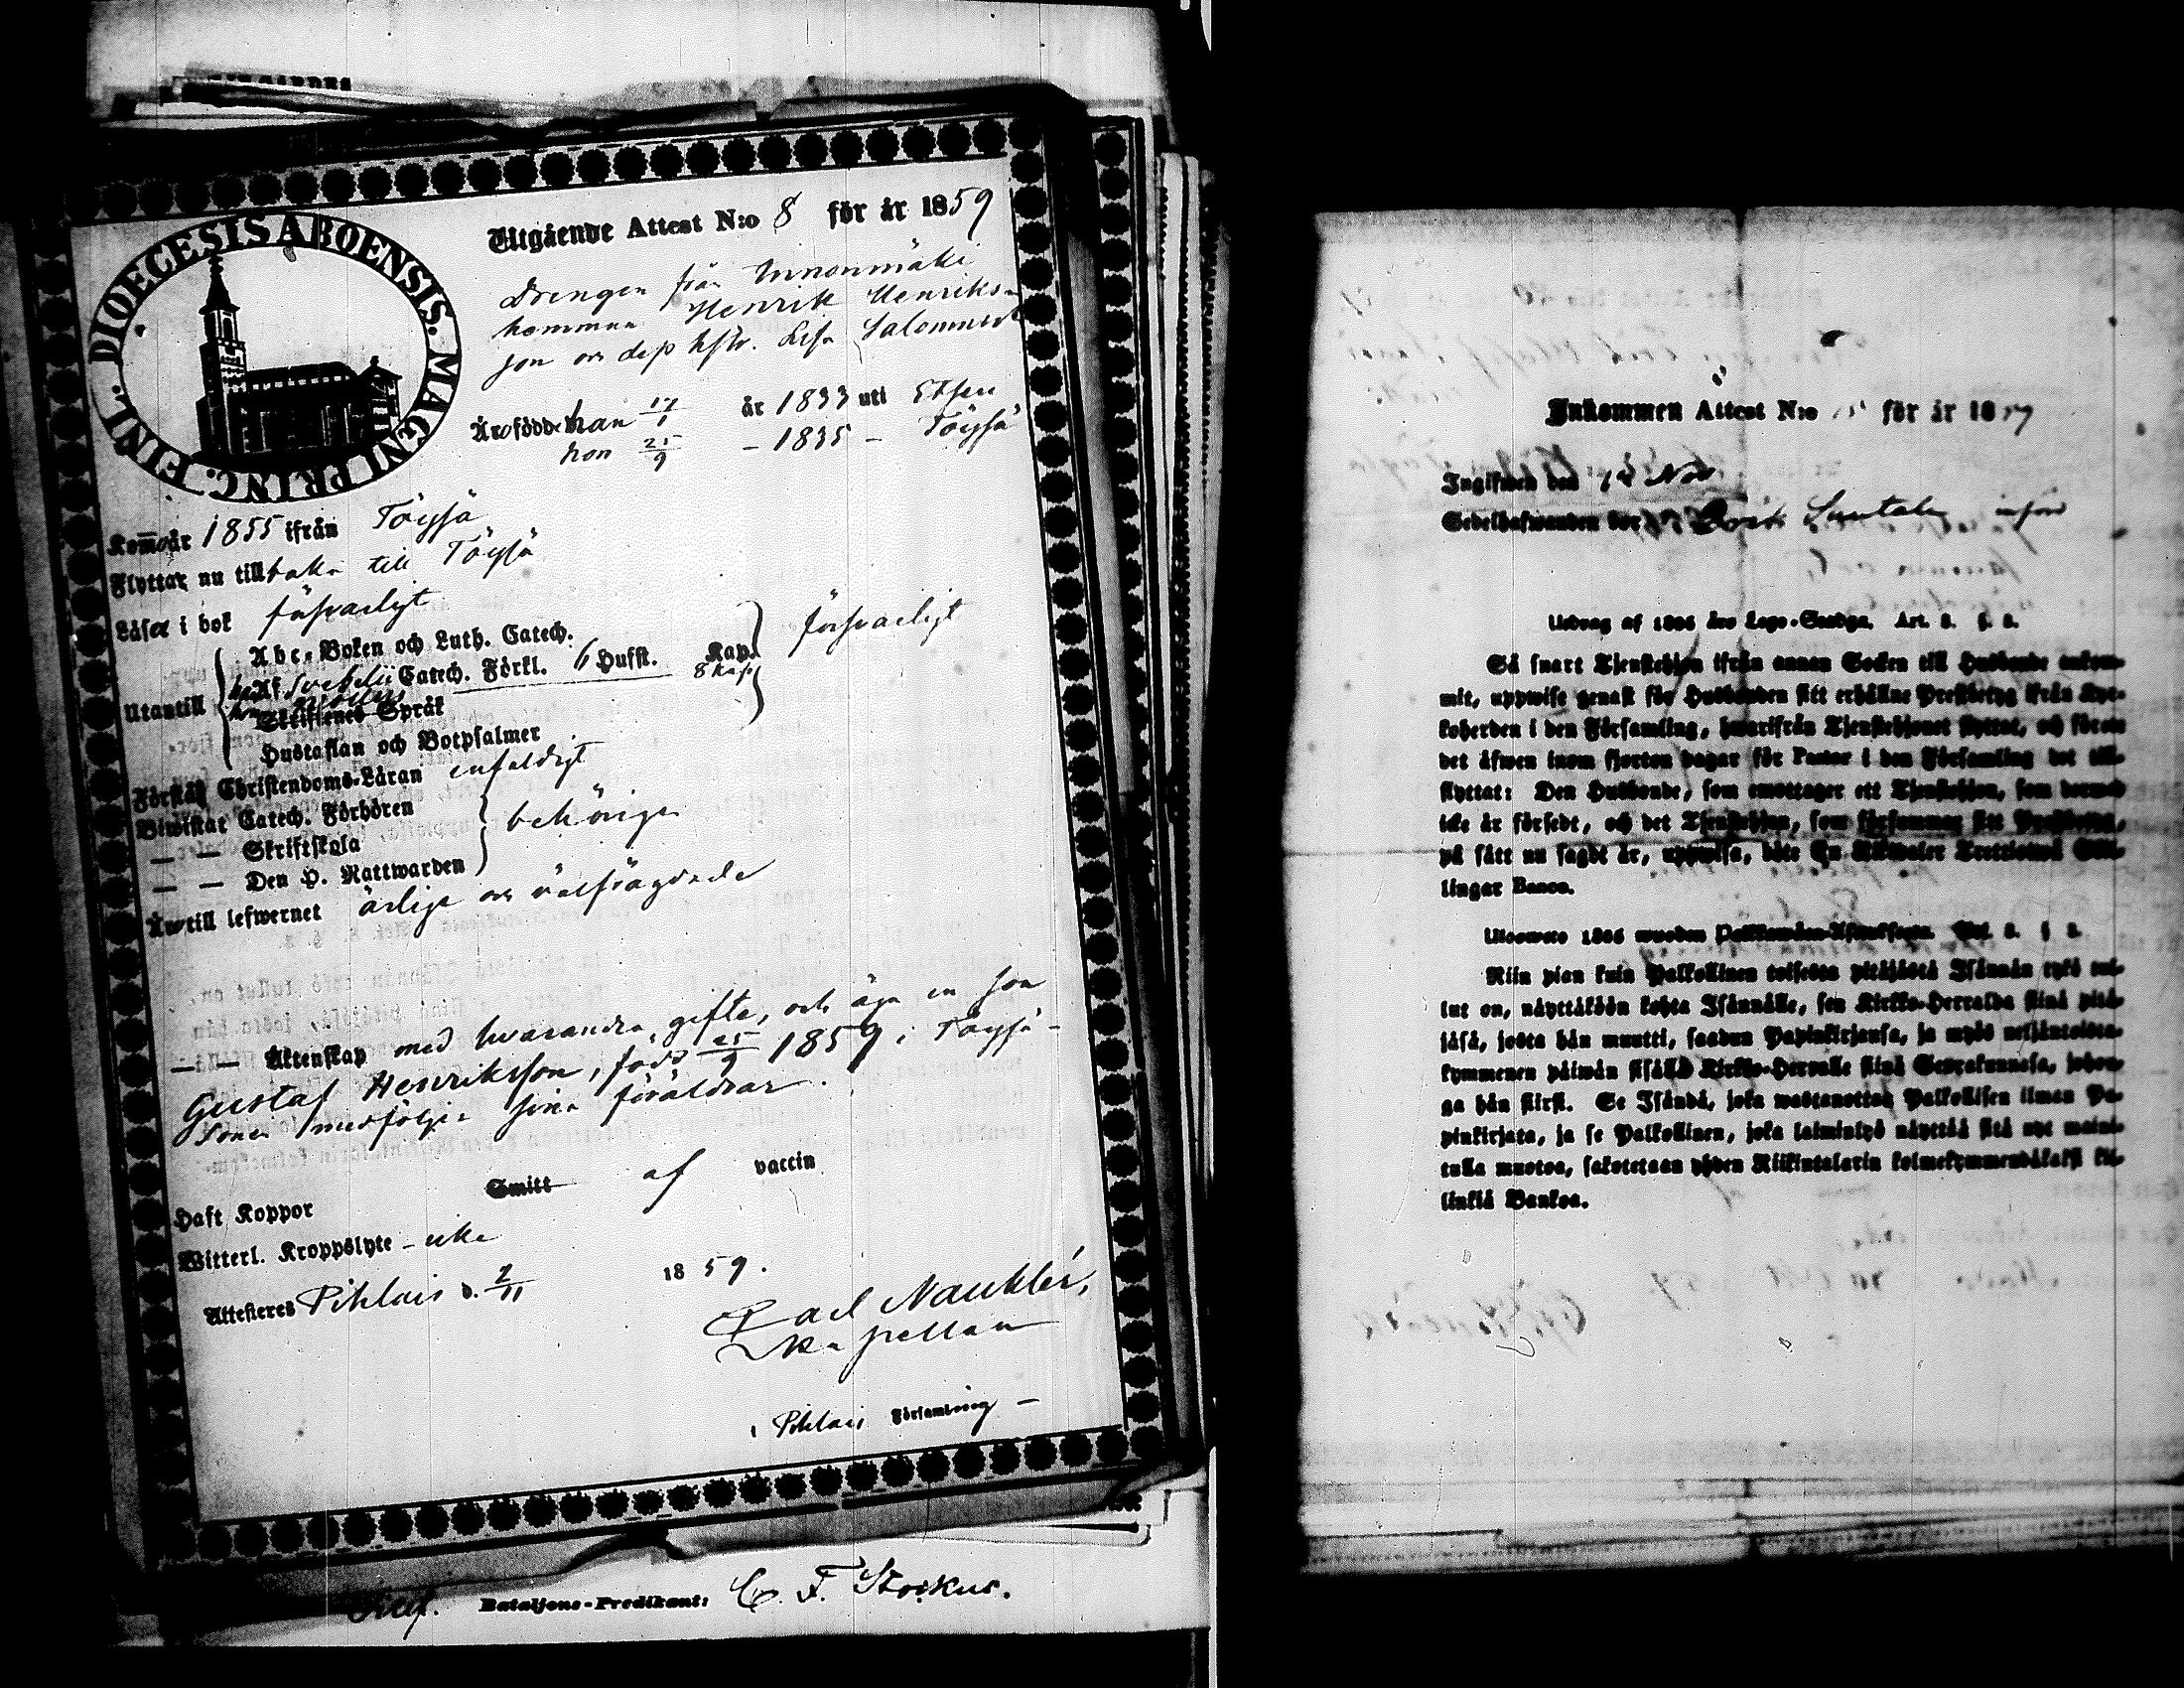 DIOECESIS ABOENSIS. MAGNI PRINC. FINL.
Utgående Attest N:o 8 för år 1859
Drengen från Innonmäki
hemman Henrik Henriks-
son och dess hstr. Lisa
Äro födde han 17/1 år 1833 uti Etseri
hon 25/9 - 1835 - Töysä
Kom̅o år 1855 ifrån Töysä
Flyttar nu tillbaka till Töysä
Läsa i bok försvarligt
Utantill
Abc-Boken och Luth. Catech.
Af Svebelii Catech. Förkl. 6 Hufst. Kap. försvarligt
8 kap
Skriftenes Språk
Hustaflan och Botpsalmer
Förstå Christendoms-Läran enfaldigt
Biwistat Catech. Förhören
— — Skriftskola behörigen
— — Den H. Nattwarden
Äro till lefwernet ärlige och välfrägdade
— — Äktenskap med hvarandra gifta, och äga en son
Gustaf Henriksson, född 25/9 1859 i Töysä -
Sonen medföljer sina föräldrar.
Haft Koppor Smitt af vaccin
Witterl. Kroppslyte - icke
Attesteres Pihlais d. 2/11 1859.
Carl Nauklér,
Kapellan
i Pihlais Församling —
Bataljons-Predikant: C. F. Storkus.
Inkommen Attest N:o för år 1859
Ingifwen den 12 Nov
Sedelhafwanden bor
Utdrag af 1805 års Lego-Stadga. Art. 3. §. 3.
Så snart Tjenstehjon ifrån annan Socken till Husbonde ankom-
mit, uppwise genast för Husbonden sitt erhållne Prestbetyg ifrån Kyr-
koherden i den Församling, hwarifrån Tjenstehjonet flyttat, och förete
det äfwen inom fjorton dagar för Pastor i den Församling det till-
flyttat: Den Husbonde, som emottager ett Tjenstehjon, som dermed
icke är försedt, och det Tjenstehjon, som försummar sitt Prestbetyg,
på sätt nu sagdt är, uppwisa, böte En Riksdaler Trettiotwå Skil-
lingar Banco.
Ulosweto 1805 wuoden Palkkawäen-Asetuksesta. Art. 3. § 3.
Niin pian kuin Palkollinen toisesta pitäjästä Isännän tykö tul-
lut on, näyttäköön kohta Isännälle, sen Kirkko-Herralda siinä pitä-
jäsä, josta hän muutti, saadun Papinkirjansa, ja myös neljäntoista-
kymmenen päiwän sisällä Kirkko-Herralle siinä Seurakunnasa, johon-
ga hän siirsi. Se Isändä, joka wastanottaa Palkollisen ilman Pa-
pinkirjata, ja se Palkollinen, joka laiminlyö näyttää sitä nyt maini-
tulla muotoa, sakotetaan yhden Riikintalarin kolmekymmendäkaksi kil-
linkiä Bankoa.